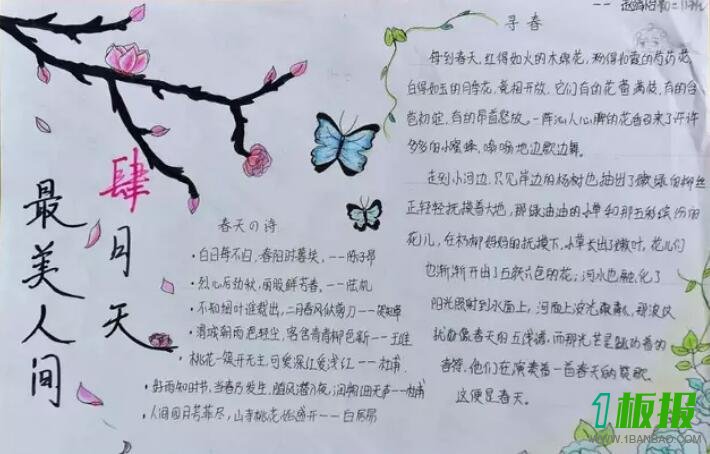 最美人间
肆月天
寻春
每到春天,红得如火的木棉花,粉得如霞的芍药花,
白得如玉的月季花,竞相开放。它们有的花蕾满枝,有的含
苞初绽,有的昂首怒放。一阵沁人心脾的花香引来了许许
多多的小蜜蜂,嗡嗡地边歌边舞。
走到小河边,只见岸边的杨树也抽出了嫩绿的柳丝
正轻轻抚摸着大地,那绿油油的小草和那五彩缤纷的
花儿,在杨柳妈妈的抚摸下,小草长出了嫩叶,花儿们
也渐渐开出了五颜六色的花;河水也融化了
阳光照射到水面上,河面上波光粼粼,那波纹
像春天的五线谱,而那光芒是跳动着的
音符,他们在演奏着一首春天的赞歌.
这便是春天。
春天の诗
·白日每不归,春阳时暮矣.——陈子昂
·烈心厉劲秋,丽服鲜芳春.——陆机
·不知细叶谁裁出,二月春风似剪刀——贺知章
·渭城朝雨浥轻尘,客舍青青柳色新——王维
·桃花一簇开无主,可爱深红爱浅红——杜甫
·好雨知时节,当春乃发生,随风潜入夜,润物细无声——杜甫
·人间四月芳菲尽,山寺桃花始盛开——白居易
1板报
WWW.1BANBAO.COM